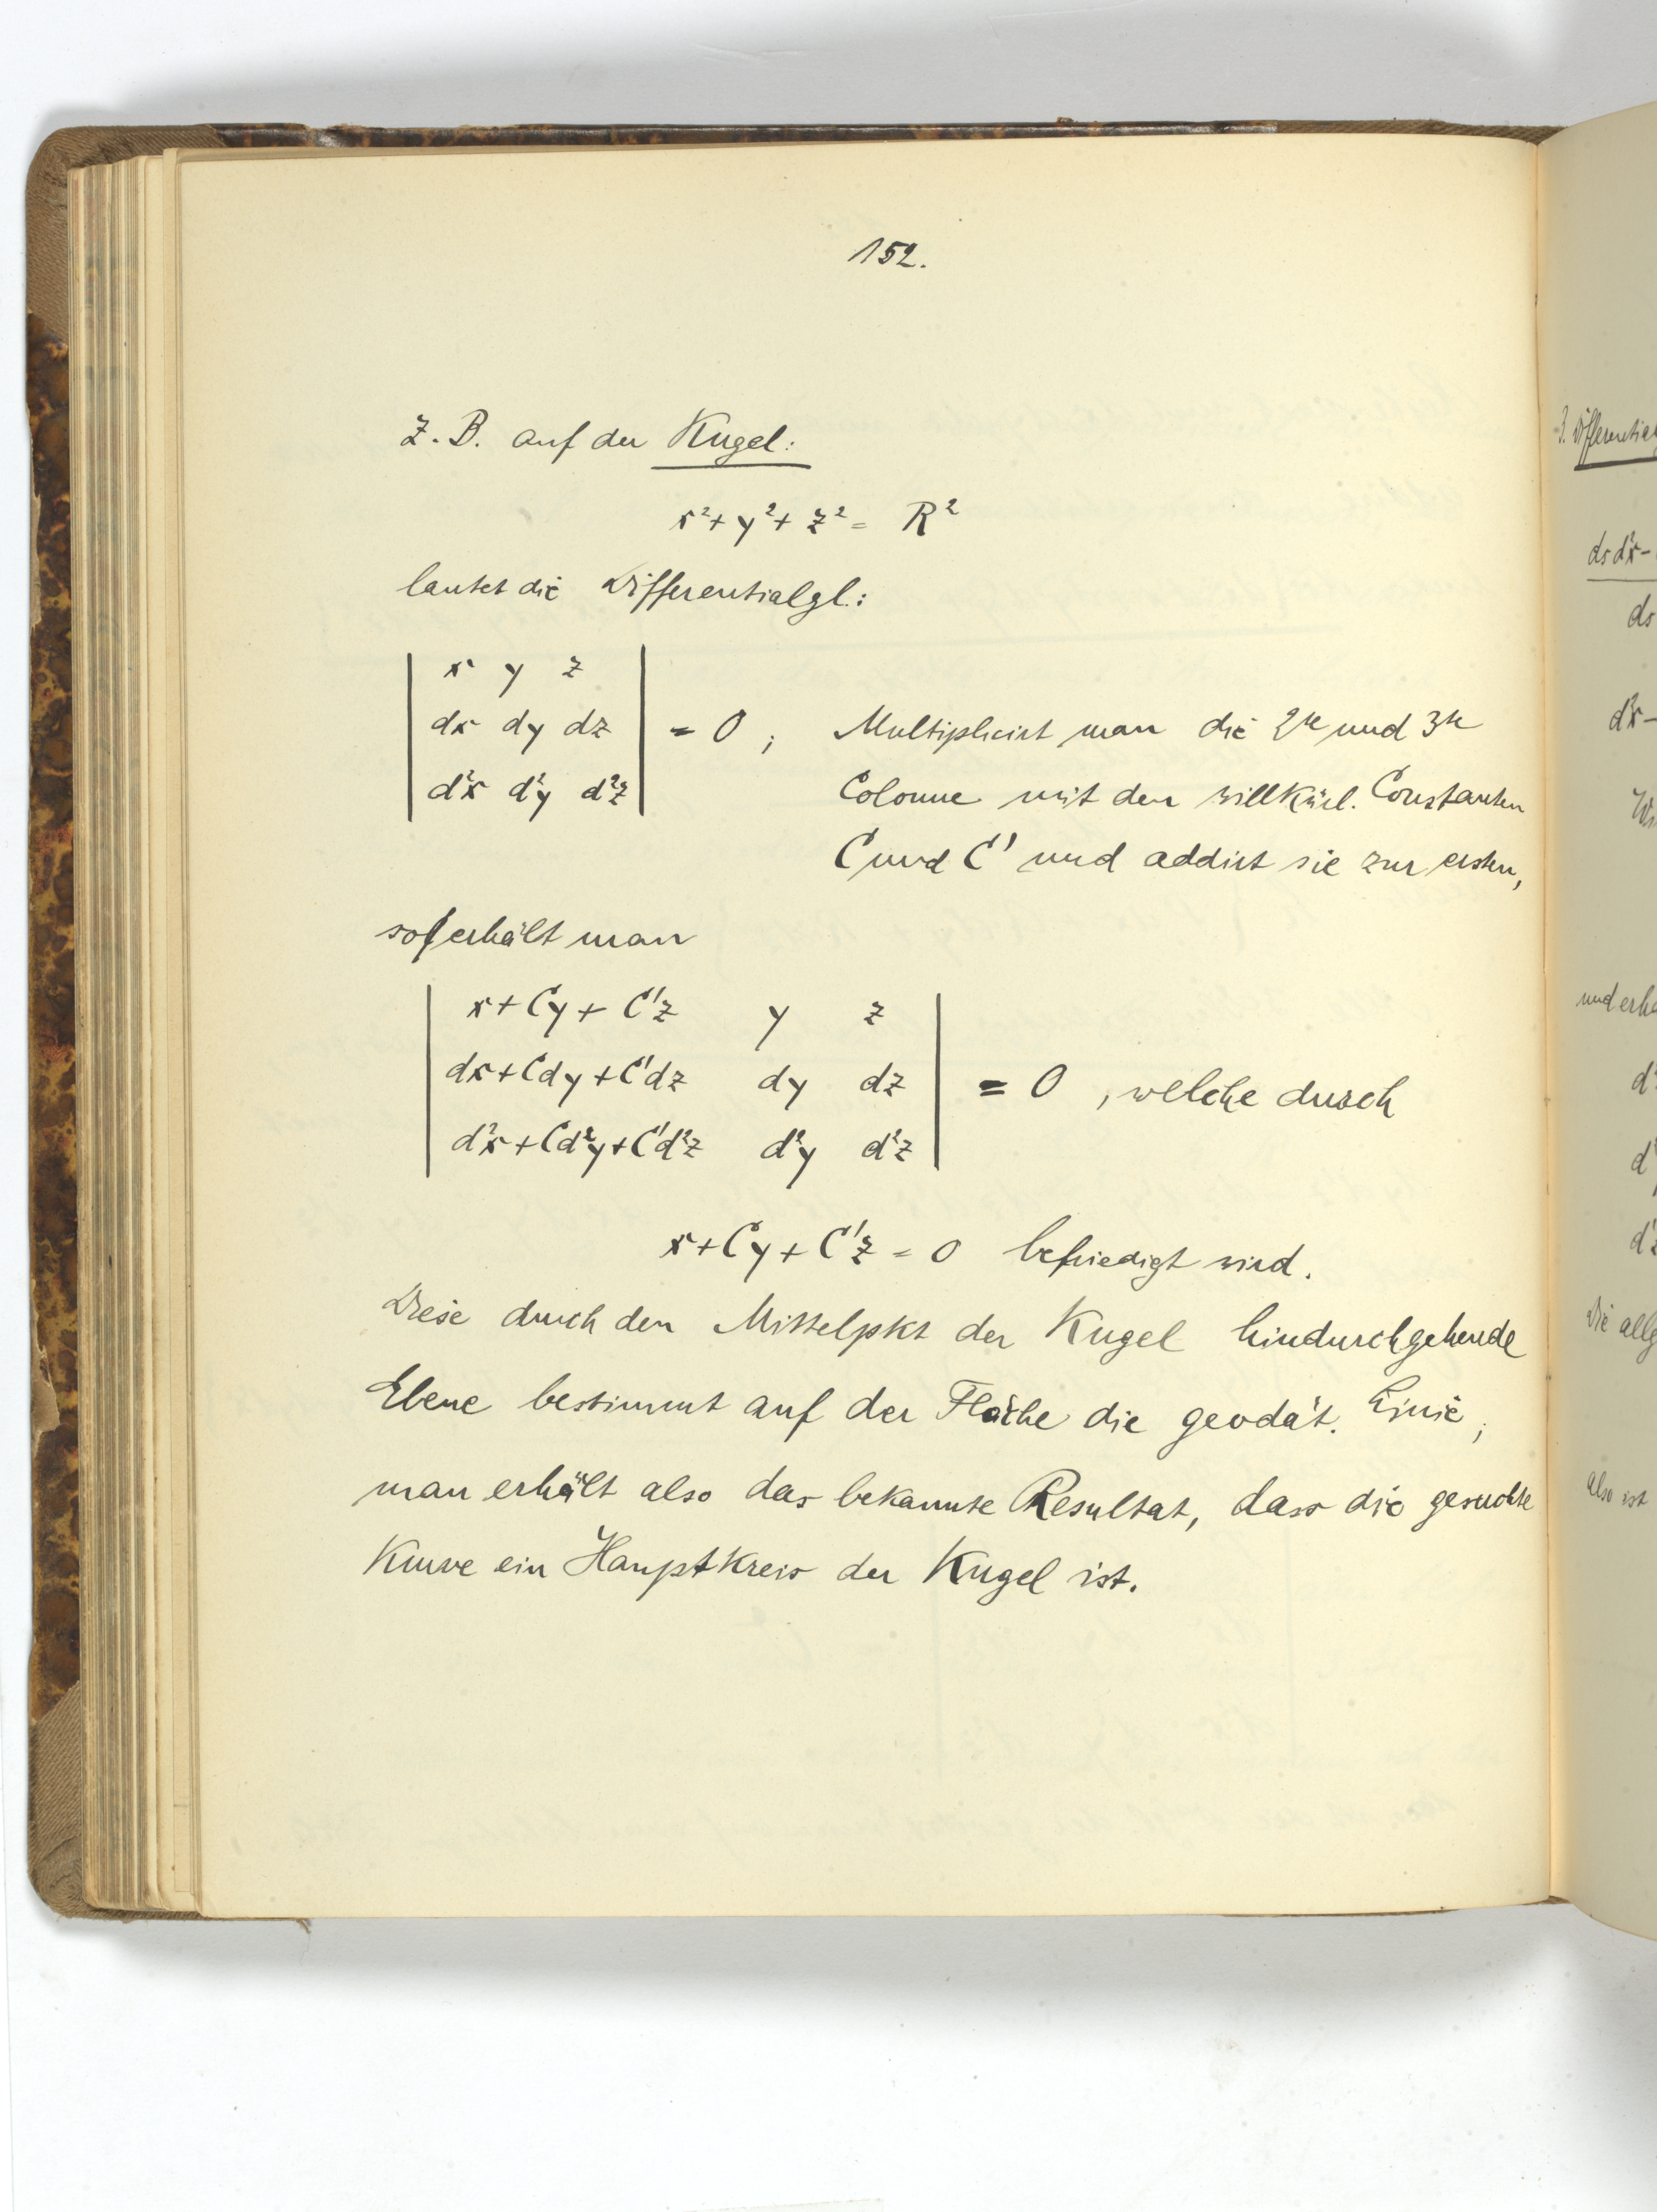 152.
Z. B. auf der Kugel:
x²+y²+z² = R²
lautet die Differentialgl.:
x y z
dx dy dz = 0 ; Multiplicirt man die 2te und 3te
d²x d²y d²z Colonne mit den willkürl. Constanten
C und C' und addirt sie zur ersten,
so erhält man
x+Cy+C'z y z
dx+Cdy+C'dz dy dz = 0 , welche durch
d²x+Cd²y+C'd²z d²y d²z
x+Cy+C'z = 0 befriedigt wird.
Diese durch den Mittelpkt der Kugel hindurchgehende
Ebene bestimmt auf der Fläche die geodät. Linie;
man erhält also das bekannte Resultat, dass die gesuchte
Kurve ein Hauptkreis der Kugel ist.
ds d²x-
ds
d²x-
und erh
Die allg
Also ist